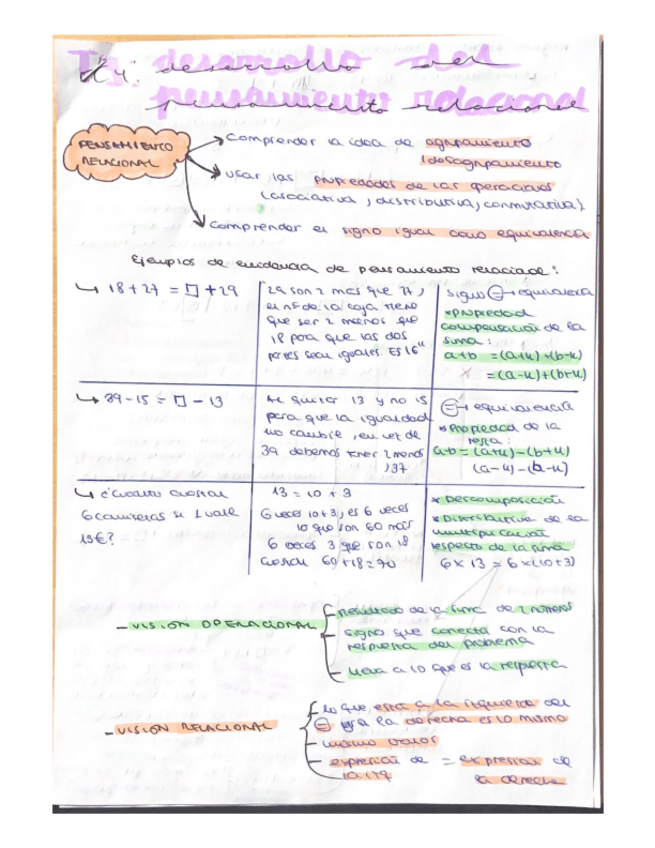 T4: desarrollo del
pensamiento relacional
PENSAMIENTO
RELACIONAL
Comprender la idea de agrupamiento
/desagrupamiento
usar las propiedades de las operaciones
(asociativa, distributiva, conmutativa).
Comprender el signo igual como equivalencia
Ejemplos de evidencia de pensamiento relacional:
18 + 27 = □ + 29
29 son 2 más que 27,
el nº de la caja tiene
que ser 2 menos que
18 para que las dos
partes sean iguales. Es 16"
signo = → equivalencia
*propiedad
compensación de la
suma:
a+b = (a+k)+(b-k)
= (a-k)+(b+k)
39 - 15 = □ - 13
Al quitar 13 y no 15
para que la igualdad
no cambie, en vez de
39 debemos tener 2 menos
, 37
= → equivalencia
* Propiedad de la
resta:
a-b = (a+k)-(b+k)
(a-k)-(b-k)
¿Cuánto cuestan
6 camisetas si 1 vale
13€?
13 = 10 + 3
6 veces 10+3, es 6 veces
10 que son 60 más
6 veces 3 que son 18
Cuestan 60+18=70
* Descomposición
* Distributiva de la
multiplicación
respecto de la suma
6 x 13 = 6 x (10+3)
- VISIÓN OPERACIONAL
resultado de la suma de 2 números
signo que conecta con la
respuesta del problema
lleva a lo que es la respuesta
- VISIÓN RELACIONAL
lo que está a la izquierda del
= y a la derecha es lo mismo
mismo valor
expresión de = expresión de
la izq la derecha